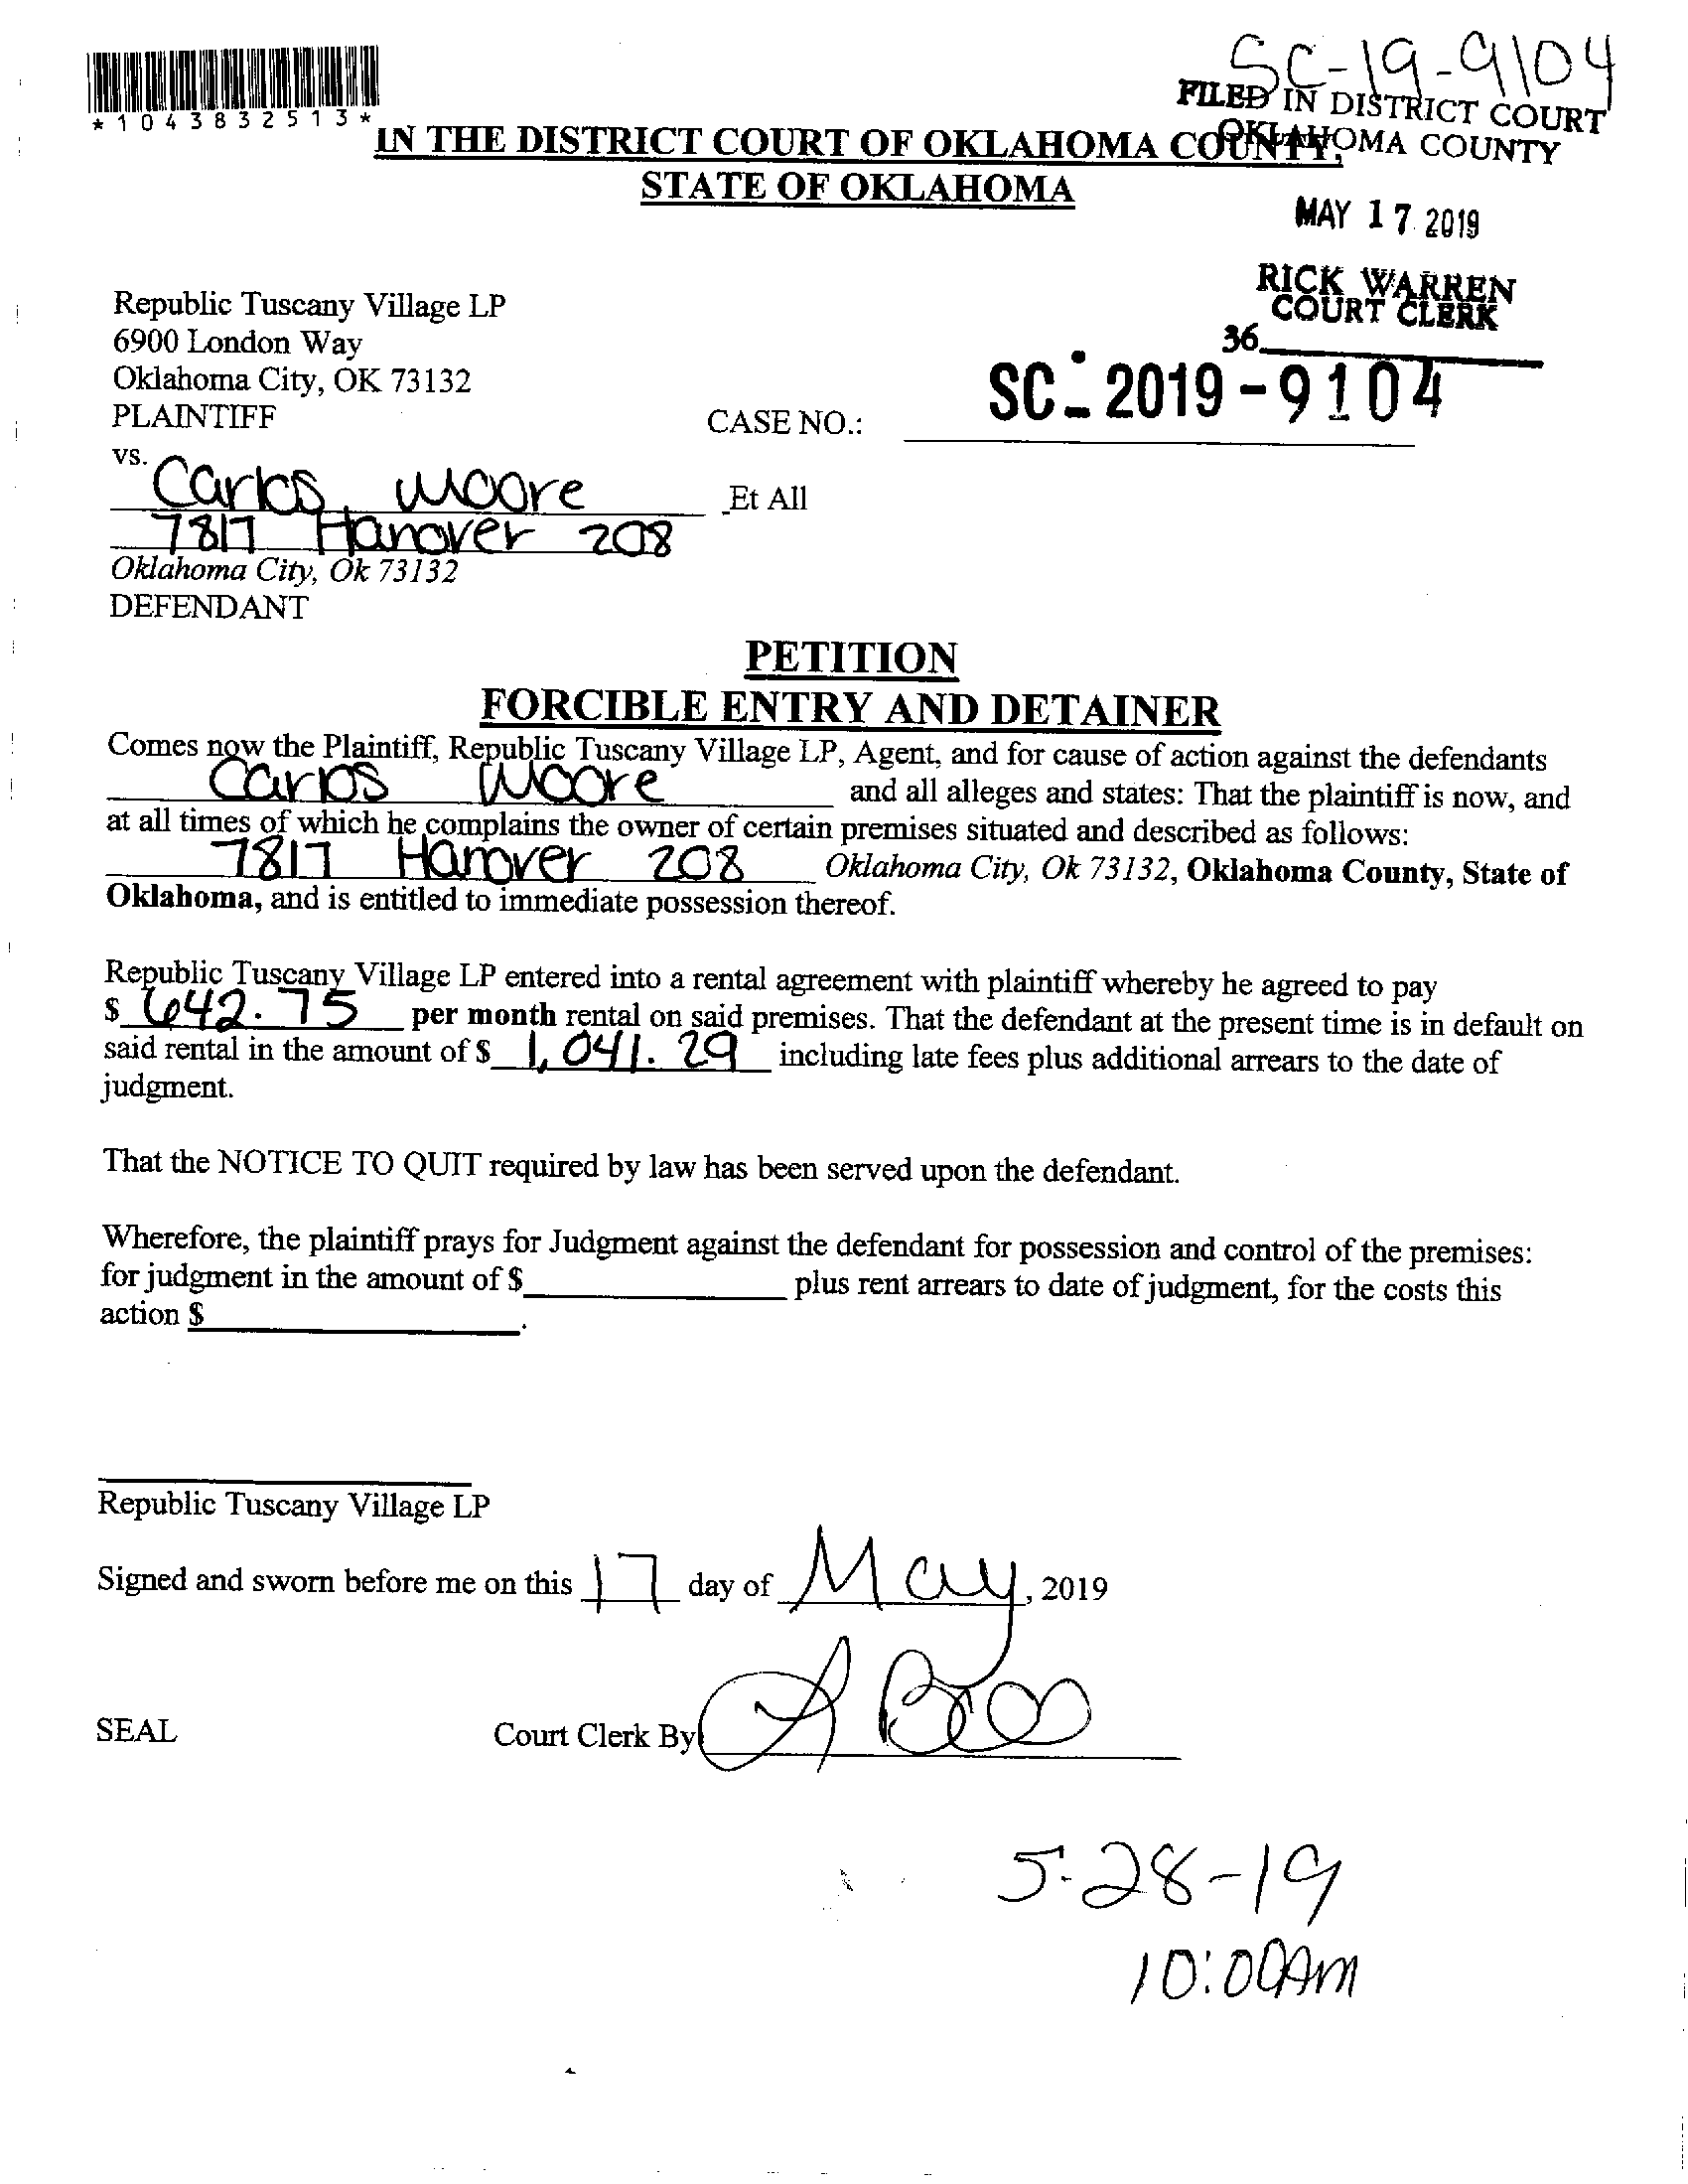 SC-19-9104
*1043832513*
FILED IN DISTRICT COURT
OKLAHOMA COUNTY
IN THE DISTRICT COURT OF OKLAHOMA COUNTY,
STATE OF OKLAHOMA
MAY 17 2019
RICK WARREN
COURT CLERK
36
Republic Tuscany Village LP
6900 London Way
Oklahoma City, OK 73132
PLAINTIFF
CASE NO.: SC-2019-9104
vs.
Carlos Moore Et All
7817 Hanover 208
Oklahoma City, Ok 73132
DEFENDANT
PETITION
FORCIBLE ENTRY AND DETAINER
Comes now the Plaintiff, Republic Tuscany Village LP, Agent, and for cause of action against the defendants
Carlos Moore and all alleges and states: That the plaintiff is now, and
at all times of which he complains the owner of certain premises situated and described as follows:
7817 Hanover 208 Oklahoma City, Ok 73132, Oklahoma County, State of
Oklahoma, and is entitled to immediate possession thereof.
Republic Tuscany Village LP entered into a rental agreement with plaintiff whereby he agreed to pay
$ 642.75 per month rental on said premises. That the defendant at the present time is in default on
said rental in the amount of $ 1,041.29 including late fees plus additional arrears to the date of
judgment.
That the NOTICE TO QUIT required by law has been served upon the defendant.
Wherefore, the plaintiff prays for Judgment against the defendant for possession and control of the premises:
for judgment in the amount of $ plus rent arrears to date of judgment, for the costs this
action $ .
Republic Tuscany Village LP
Signed and sworn before me on this 17 day of May, 2019
SEAL
Court Clerk By
5-28-19
10:00AM